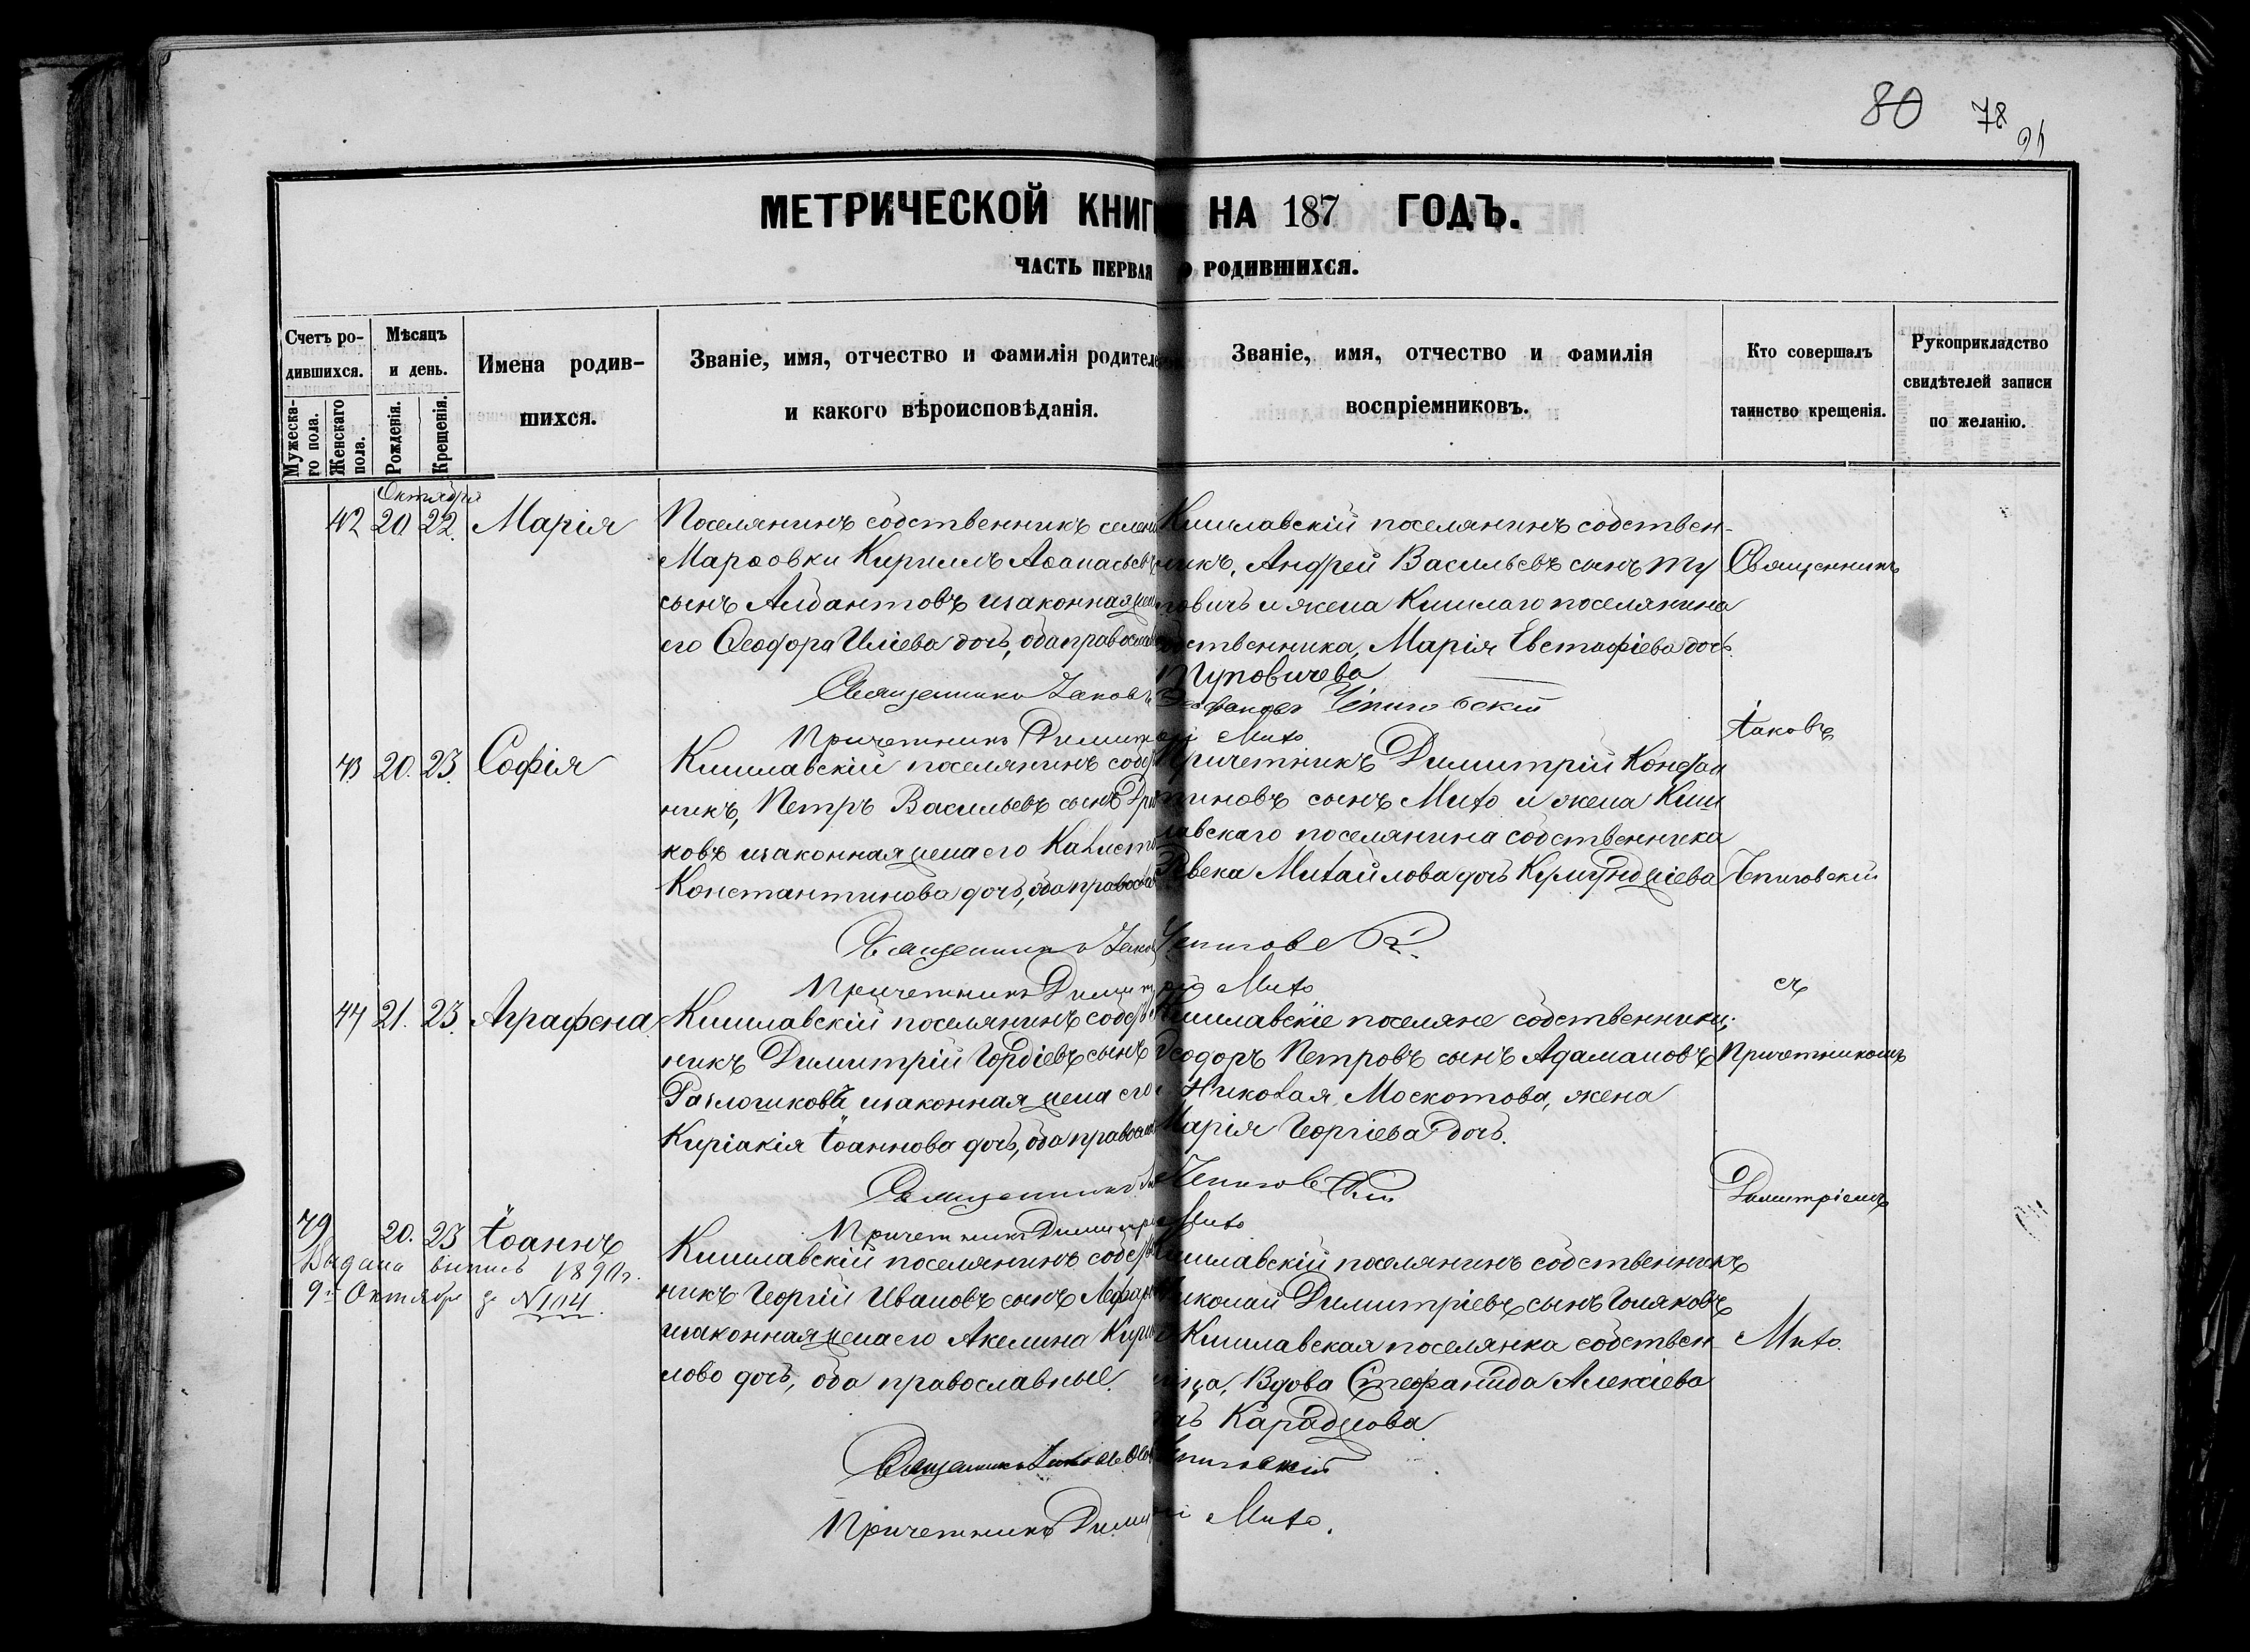 80 78
МЕТРИЧЕСКОЙ КНИГ НА 187 ГОДЪ.
ЧАСТЬ ПЕРВАЯ О РОДИВШИХСЯ.
Счетъ ро-
дившихся.
Мужеска-
го пола.
Женскаго
пола.
Мѣсяцъ
и день.
Рожденія.
Крещенія.
Имена родив-
шихся.
Званіе, имя, отчество и фамилія родителе
и какого вѣроисповѣданія.
Званіе, имя, отчество и фамилія
воспріемниковъ.
Кто совершалъ
таинство крещенія.
Рукоприкладство
свидѣтелей записи
по желанію.
Октября
42 20. 22. Марія
Поселянинъ собственникъ селен
Марфовки Кириллъ Аѳанасьевъ
сынъ Алдантовъ и законная
его Ѳеодора Иліева дочь, оба православ
Кишлавскій поселянинъ собствен-
никъ, Андрей Васильевъ сынъ Ту
повичъ и жена Кишлаго поселянина
ственника, Марія Евстафіева дочь
Туповичева
Священникъ Іаковъ Чепиговскій
Причетникъ Димитрій Михо
43 20. 23. Софія
Кишлавскій поселянинъ собст
никъ, Петръ Васильевъ сынъ
ковъ и законная жена его
Константинова дочь, оба православ
Причетникъ Димитрій Констан
тиновъ сынъ Михо и жена Киш
лавскаго поселянина собственника
Ревека Михайлова дочь
Священникъ Іаковъ Чепиговскій
Причетникъ Димитрій Михо
44 21. 23. Аграфена
Кишлавскій поселянинъ собст
никъ Димитрій Гордіевъ сынъ
и законная жена его
Киріакія Іоаннова дочь, оба правосл
Кишлавскіе поселяне собственники;
Ѳеодоръ Петровъ сынъ Адамановъ
и Николая Москотова, жена
Марія Георгіева дочь.
Священникъ Чепиговскій
Причетникъ Димитрій Михо
49 20. 23 Іоаннъ
Выдана выпись 1890 г.
9 Октября за №104.
Кишлавскій поселянинъ собств
никъ Георгій Ивановъ сынъ
и законная жена его Акелина Кирил
лова дочь, оба православные.
Кишлавскій поселянинъ собственникъ
Николай Димитріевъ сынъ Голяковъ
и Кишлавская поселянка собствен-
ница, Вдова Стефанида Алексіева
дочь Караджова
Священникъ Чепиговскій
Причетникъ Димитрій Михо.
Священникъ
Іаковъ
Чепиговскій
съ
Причетникомъ
Димитріемъ
Михо.